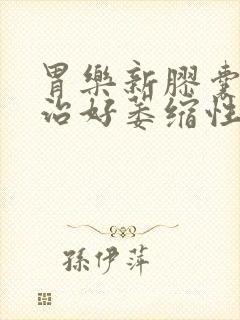 胃樂新膠囊
治好萎缩性
孫伊萍